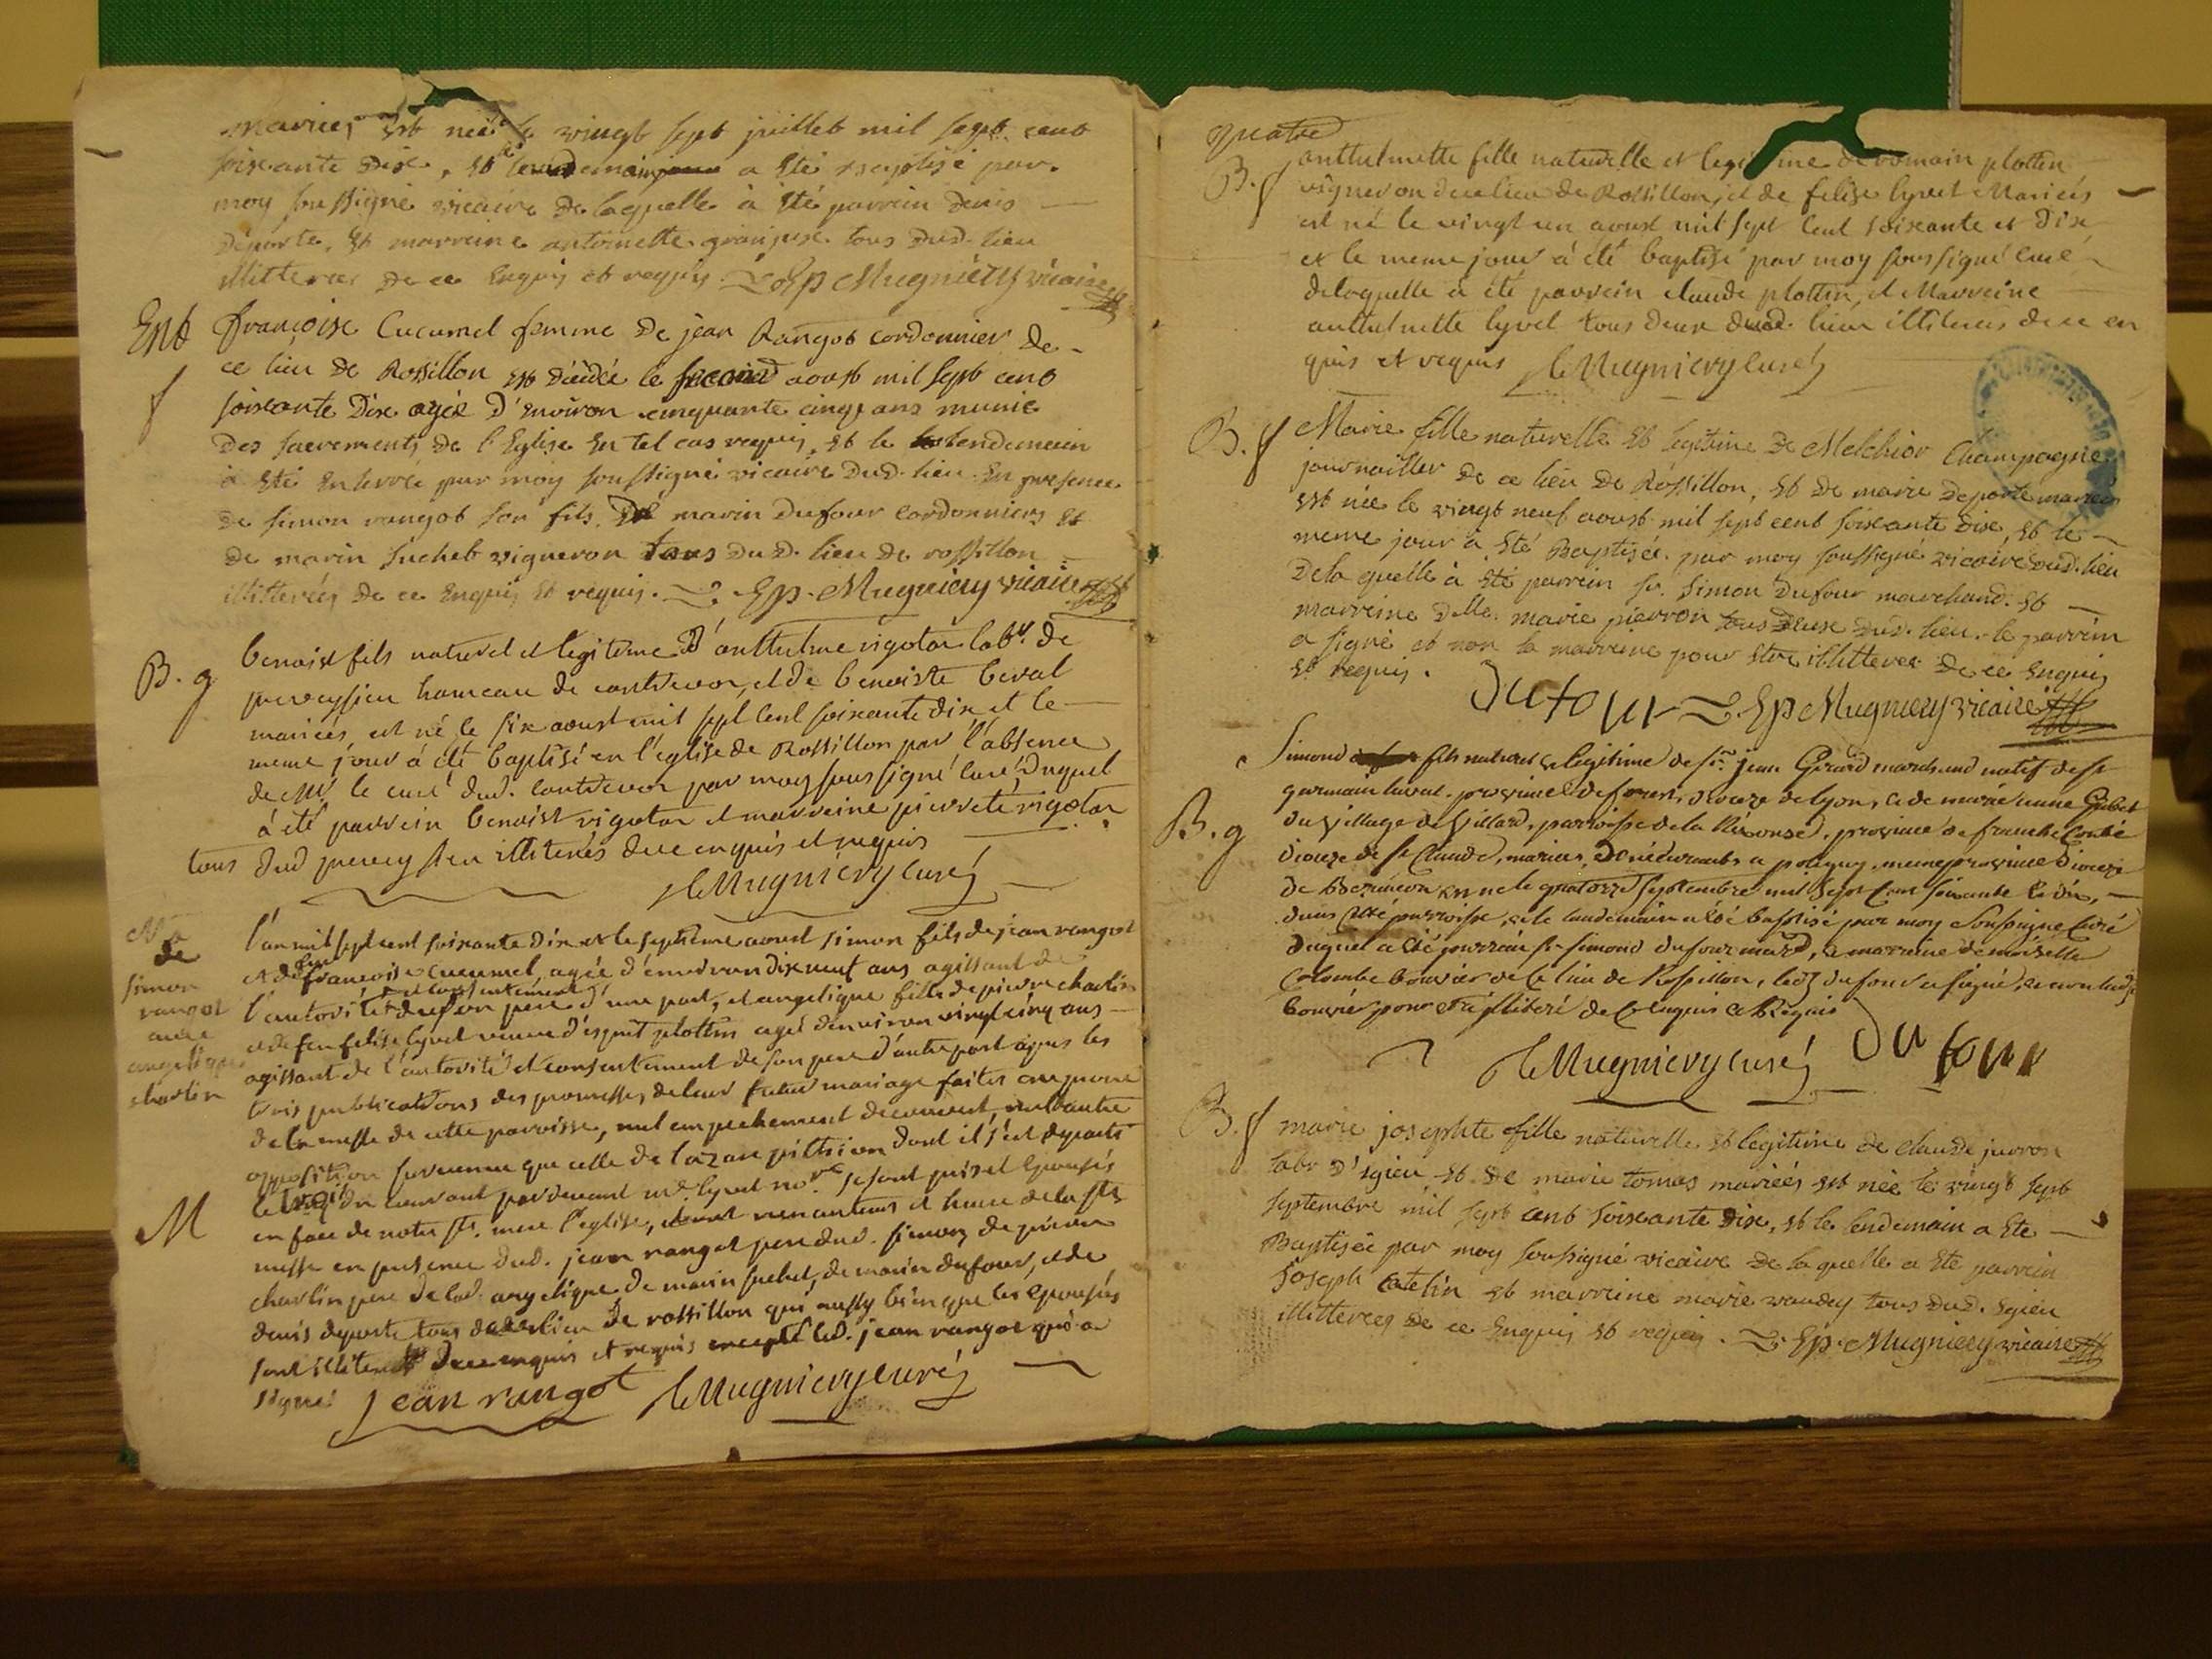 mariés, est née le vingt sept juillet mil sept cent
soixante dix, et le lendemain a été baptisé par
moy soussigné vicaire de laquelle à été parrein denis
deporte, et marreine antoinette tous dud. lieu
illitterés de ce enquis et requis. Ep Mugniery vicaire
Ent françoise Cucumel femme de jean Rangot cordonnier de
ce lieu de Rossillon est décédée le second aoust mil sept cent
f soixante dix agée d'environ cinquante cinq ans munie
des sacrements de l'Eglise en tel cas requis, et le lendemain
à été enterrée par moy soussigné vicaire dud. lieu en presence
de simon rangot son fils, de marin dufour cordonniers et
de marin suchet vigneron tous dud. lieu de rossillon
illitterés de ce enquis et requis. Ep. Mugniery vicaire
B. g benoist fils naturel et legitime d'anthelme rigotar labr. de
preveyssieu hameau de contrevoz, et de benoiste beval
mariés, est né le six aoust mil sept cent soixante dix et le
meme jour à été baptisé en l'eglise de Rossillon par l'absence
de Mr le curé dud. contrevoz par moy sous signé curé duquel
à été parrein benoist rigotar et marreine pierrete rigotar
tous dud preveyssieu illiterés de ce enquis et requis
Mugniery curé
l'an mil sept cent soixante dix et le septieme aoust simon fils de jean rangot
de
simon
rangot
avec
angelique
charlin
et de feu françoise cucumel, agée d'environ dix neuf ans agissant de
l'autorité et consentement de son pere d'une part, et angelique fille de pierre charlin
et de feu felise lyvet veuve d'esprit plottin agée d'environ vingt cinq ans
agissant de l'autorité et consentement de son pere d'autre part apres les
trois publications des promesses de leur futur mariage faites au prone
de la messe de cette paroisse, nul empechement decouvert, nulle autre
opposition survenue que celle de lazare pittion dont il s'est departi
le du courant pardevant me. lyvet nore se sont pris et epousés
M en face de notre ste. mere l'eglise, et heure de la ste
messe en presence dud. jean rangot pere dud. simon, de pierre
charlin pere de lad. angelique de marin suchet, de marin dufour, et de
denis deporte tous de ce lieu de rossillon qui aussy bien que les epousés
sont illiterés de ce enquis et requis excepté led. jean rangot qui a
signé jean rangot Mugniery curé
quatre
B. f anthelmette fille naturelle et legitime de romain plotten
vigneron de ce lieu de Rossillon, et de felise lyvet Mariés
est né le vingt un aoust mil sept cent soixante et dix
et le meme jour à été baptisé par moy sous signé curé
de laquelle à été parrein claude plottin, et Marreine
anthelmette lyvet tous deux dud. lieu illiterés de ce en
quis et requis Mugniery curé
B. f Marie fille naturelle et legitime de Melchior Champagne
journallier de ce lieu de Rossillon, et de marie deporte mariés
est née le vingt neuf aoust mil sept cent soixante dix, et le
meme jour à été Baptisée par moy soussigné vicaire dud. lieu
de la quelle à été parrein sr. Simon Dufour marchand. et
marreine delle. marie pierron tous deux dud. lieu. le parrein
a signé et non la marreine pour etre illitteree de ce enquis
et requis. Dufour Ep Mugniery vicaire
Simond fils naturel et legitime de sr. jean Girard marchand natif de st
germain laval, province de forest, dioceze de lyon, et de marie anne
B. g du village de Villard, parroisse de la Rixouse, province de franche Conté
dioceze de st Claude, mariés, demeurants a poligny, meme province dioceze
de Bezancon est né le quatorze septembre mil sept cent soixante et dix,
dans cette parroisse, et le landemain a été baptisé par moy soussigné Curé
duquel a été parrain sr Simond dufour mard, et marreine demoiselle
Colombe bouvier de ce lieu de Rossillon, ledt dufour a signé, et non lad
bouvier pour etre illiteré de ce enquis et Requis
Mugniery curé Dufour
B. f marie josephte fille naturelle et legitime de claude juvron
labr d'egieu et de marie tomas mariés est née le vingt sept
septembre mil sept cent soixante dix, et le lendemain a été
Baptisée par moy soussigné vicaire de la quelle a été parrein
joseph catelin et marreine marie vauday tous dud. egieu
illitterés de ce enquis et requis. Ep. Mugniery vicaire